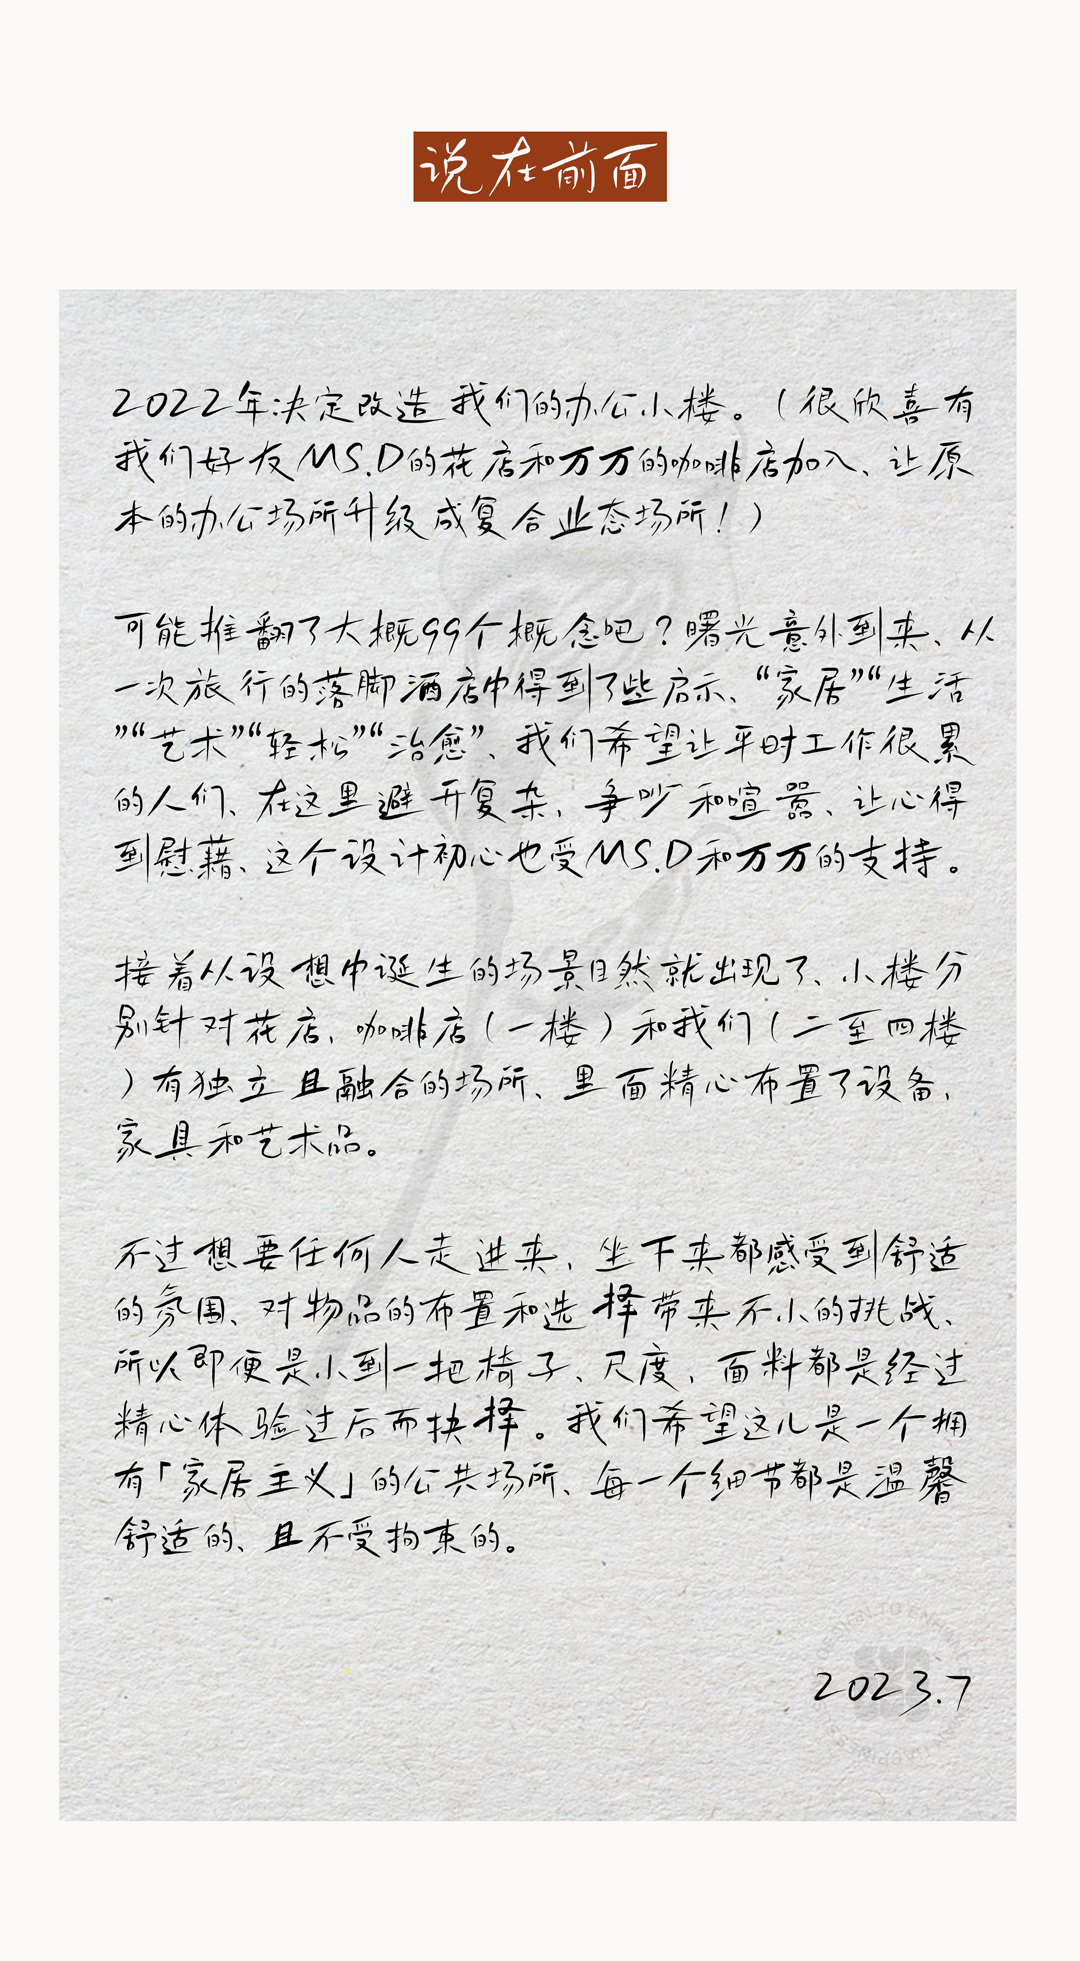 说在前面
2022年决定改造我们的办公小楼。（很欣喜有
我们好友MS.D的花店和万万的咖啡店加入、让原
本的办公场所升级成复合业态场所！）
可能推翻了大概99个概念吧？曙光意外到来、从
一次旅行的落脚酒店中得到了些启示、“家居”“生活
”“艺术”“轻松”“治愈”、我们希望让平时工作很累
的人们、在这里避开复杂，争吵和喧嚣、让心得
到慰藉、这个设计初心也受MS.D和万万的支持。
接着从设想中诞生的场景自然就出现了、小楼分
别针对花店，咖啡店（一楼）和我们（二至四楼
）有独立且融合的场所、里面精心布置了设备，
家具和艺术品。
不过想要任何人走进来，坐下来都感受到舒适
的氛围、对物品的布置和选择带来不小的挑战、
所以即便是小到一把椅子、尺度，面料都是经过
精心体验过后而抉择。我们希望这儿是一个拥
有「家居主义」的公共场所、每一个细节都是温馨
舒适的、且不受拘束的。
2023.7
DESIGN TO